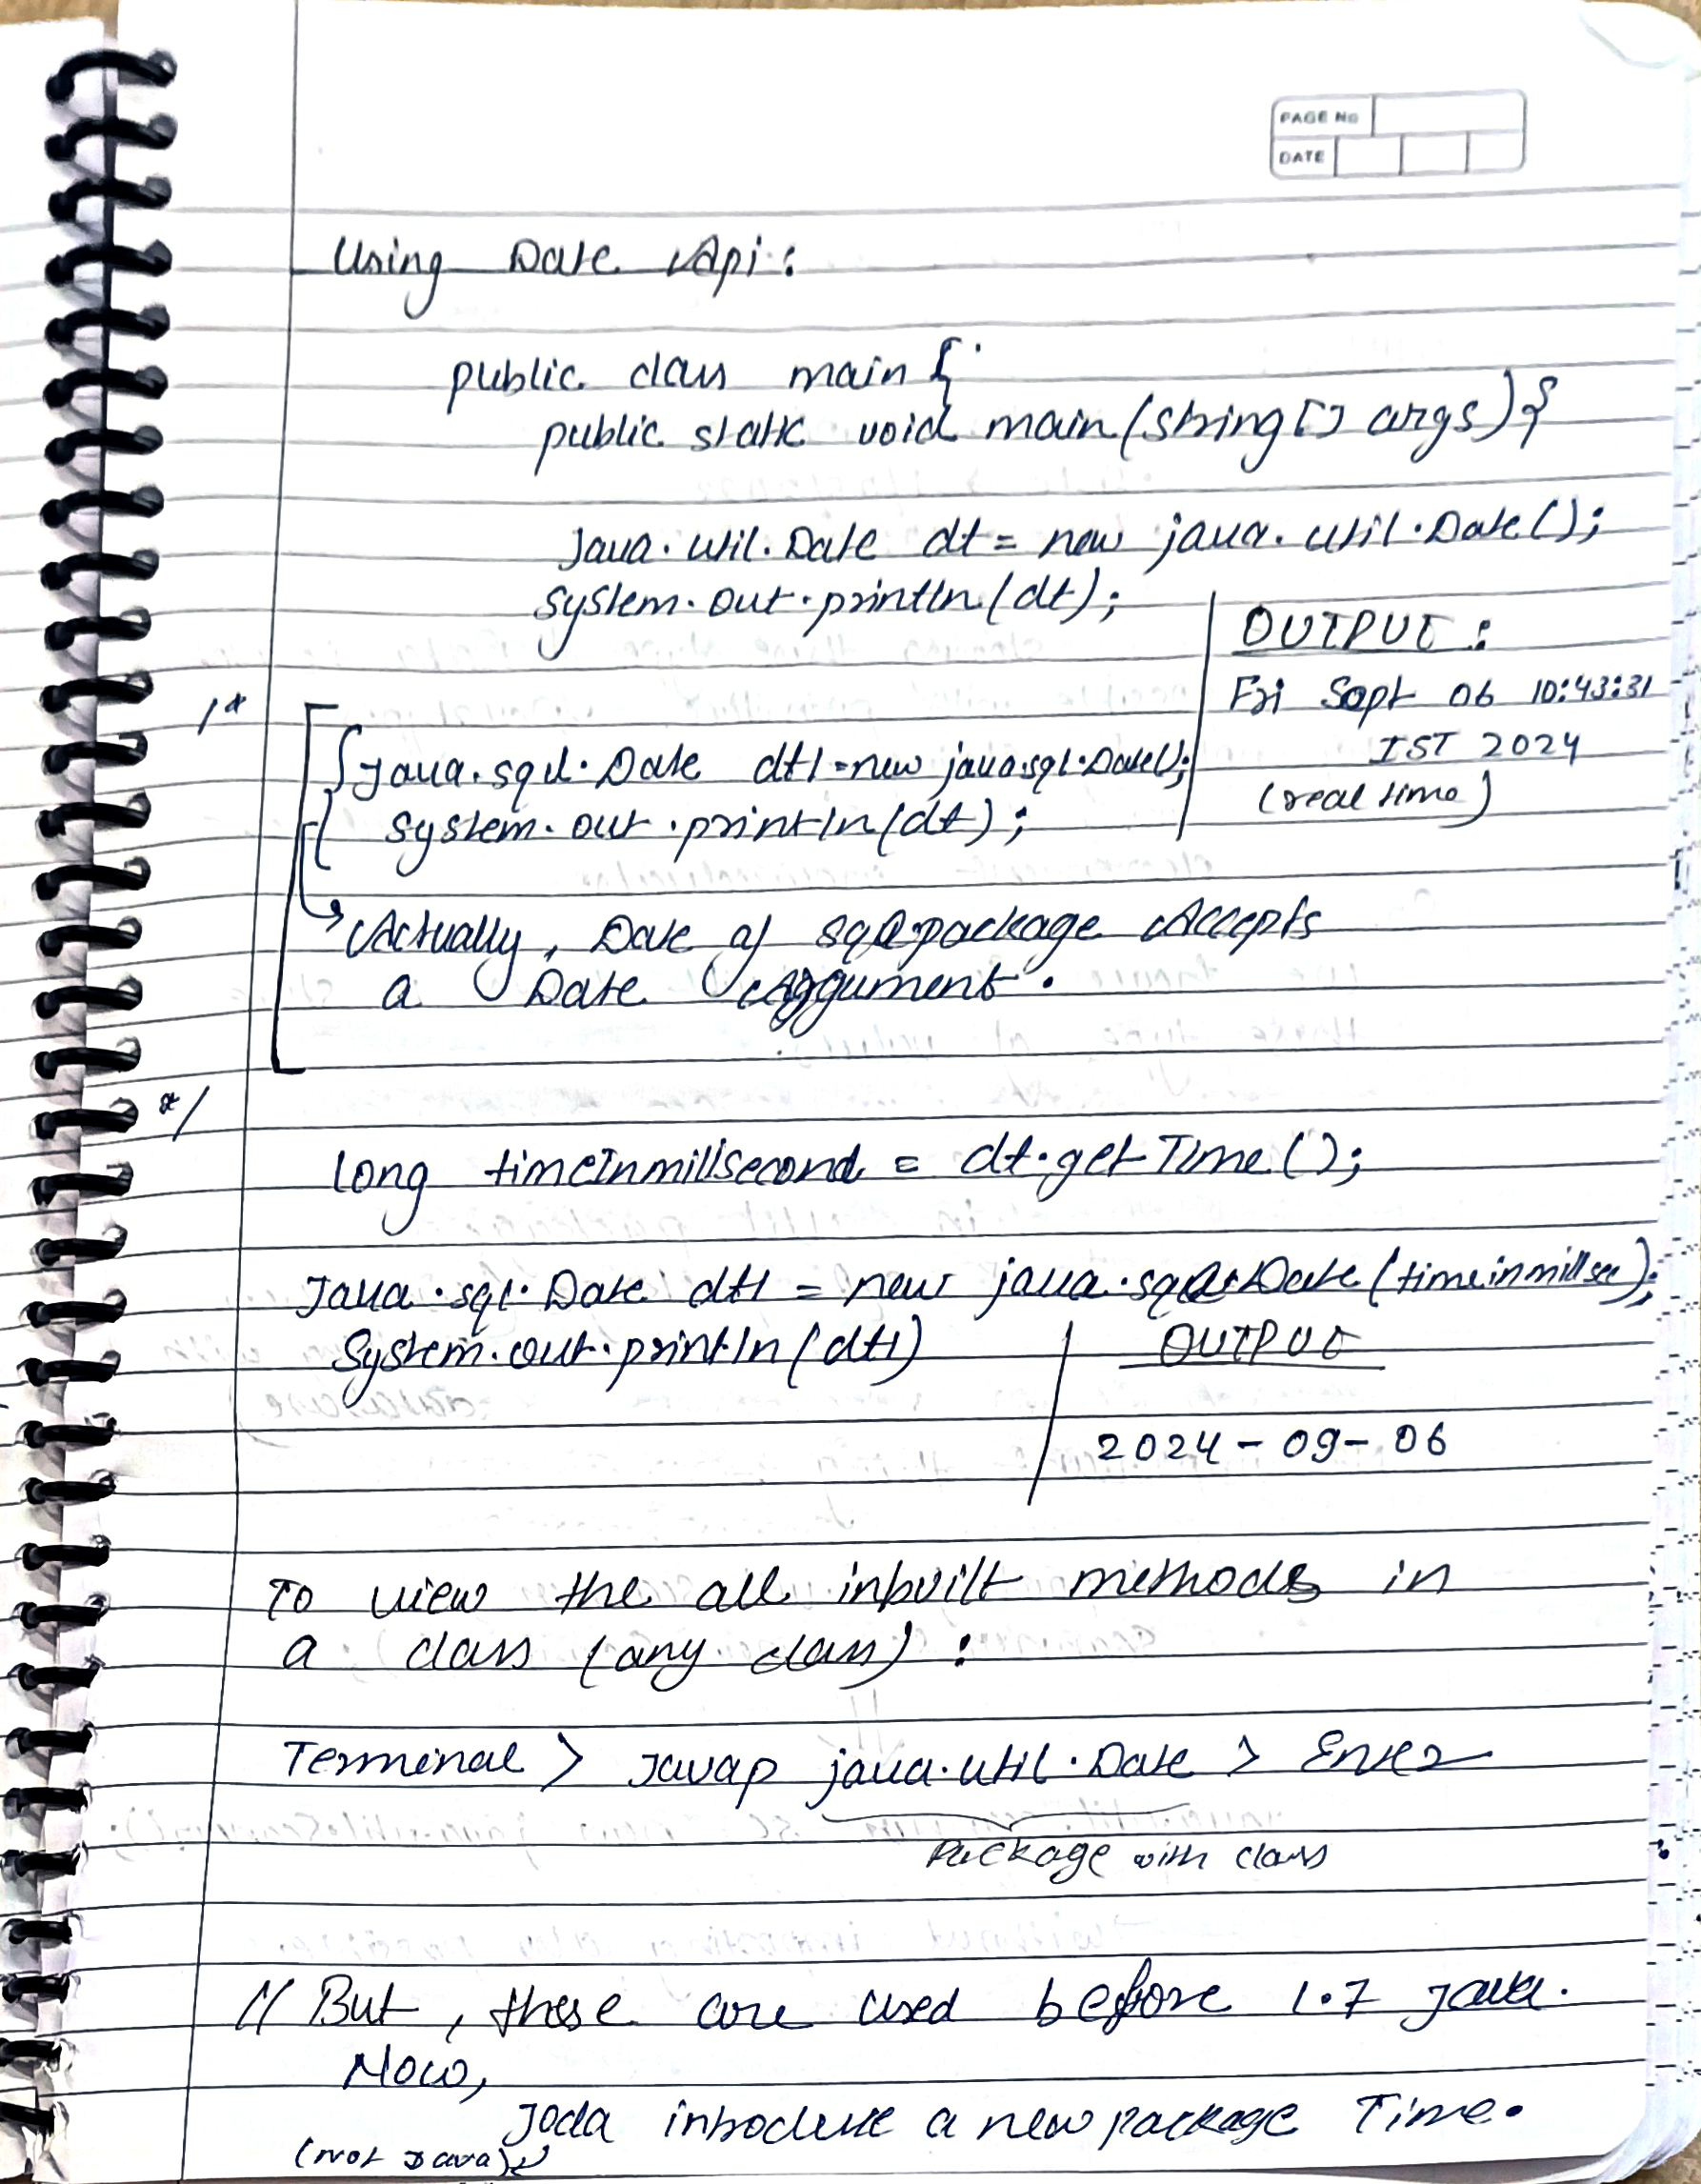 PAGE No
DATE
Using Date Api:
public class main {
public static void main(string[] args){
java.util.Date dt = new java.util.Date();
system.out.println(dt);
OUTPUT:
Fri Sept 06 10:43:31
IST 2024
(real time)
/*
java.sql.Date dt1=new java.sql.Date();
system.out.println(dt);
Actually, Date of sql package Accepts
a Date Aggument.
*/
long timeInmillsecond = dt.getTime();
Java.sql.Date dt1 = new java.sql.Date(timeinmillsec);
System.out.println(dt1)
OUTPUT
2024-09-06
To view the all inbuilt methods in
a class (any class) :
Terminal > Javap java.util.Date > Enter
Package with class
// But, these are used before 1.7 java.
Now,
Joda introduce a new package Time.
(not Java)